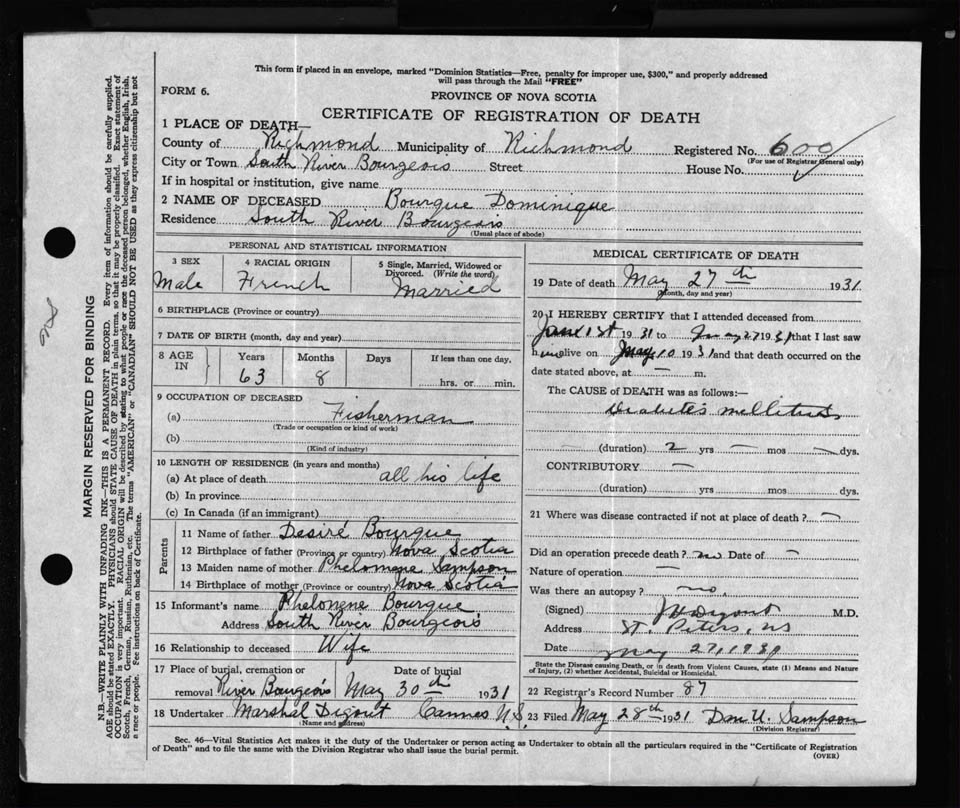 This form if placed in an envelope, marked "Dominion Statistics—Free, penalty for improper use, $300," and properly addressed
will pass through the Mail "FREE"
FORM 6.
PROVINCE OF NOVA SCOTIA
CERTIFICATE OF REGISTRATION OF DEATH
1 PLACE OF DEATH—
County of Richmond Municipality of Richmond Registered No. 600
(For use of Registrar General only)
City or Town South River Bourgeois Street House No.
If in hospital or institution, give name
2 NAME OF DECEASED Bourque Dominique
Residence South River Bourgeois
(Usual place of abode)
PERSONAL AND STATISTICAL INFORMATION
3 SEX 4 RACIAL ORIGIN 5 Single, Married, Widowed or
Divorced. (Write the word)
Male French Married
6 BIRTHPLACE (Province or country)
7 DATE OF BIRTH (month, day and year)
8 AGE IN Years Months Days If less than one day.
63 8 hrs. or min.
9 OCCUPATION OF DECEASED
(a) Fisherman
(Trade or occupation or kind of work)
(b)
(Kind of industry)
10 LENGTH OF RESIDENCE (in years and months)
(a) At place of death all his life
(b) In province
(c) In Canada (if an immigrant)
Parents
11 Name of father Desiré Bourque
12 Birthplace of father (Province or country) Nova Scotia
13 Maiden name of mother Phelomene Sampson
14 Birthplace of mother (Province or country) Nova Scotia
15 Informant's name Phelonene Bourque
Address South River Bourgeois
16 Relationship to deceased Wife
17 Place of burial, cremation or Date of burial
removal River Bourgeois May 30th 1931
18 Undertaker Marshal Digout Cannes N.S.
(Name and address)
MEDICAL CERTIFICATE OF DEATH
19 Date of death May 27th 1931
(Month, day and year)
20 I HEREBY CERTIFY that I attended deceased from
1st 1931 to May 27 1931 that I last saw
him alive on May 10 1931 and that death occurred on the
date stated above, at — m.
The CAUSE OF DEATH was as follows:—
Diabetes mellitus
(duration) 2 yrs — mos — dys.
CONTRIBUTORY —
(duration) yrs mos dys.
21 Where was disease contracted if not at place of death? —
Did an operation precede death? no Date of —
Nature of operation —
Was there an autopsy? no.
(Signed) Digout M.D.
Address St. Peters, NS
Date May 27, 1931
State the Disease causing Death, or in death from Violent Causes, state (1) Means and Nature
of Injury, (2) whether Accidental, Suicidal or Homicidal.
22 Registrar's Record Number 87
23 Filed May 28th 1931 Dan U. Sampson
(Division Registrar)
Sec. 46—Vital Statistics Act makes it the duty of the Undertaker or person acting as Undertaker to obtain all the particulars required in the "Certificate of Registration
of Death" and to file the same with the Division Registrar who shall issue the burial permit.
(OVER)
MARGIN RESERVED FOR BINDING
N.B.—WRITE PLAINLY WITH UNFADING INK—THIS IS A PERMANENT RECORD. Every item of information should be carefully supplied.
AGE should be stated EXACTLY. PHYSICIANS should STATE CAUSE OF DEATH in plain terms, so that it may be properly classified. Exact statement of
OCCUPATION is very important. RACIAL ORIGIN will be described by stating to what people or race the deceased person belonged, whether English, Irish,
Scotch, French, German, Russian, Ruthenian, etc. The terms "AMERICAN" or "CANADIAN" SHOULD NOT BE USED as they express citizenship but not
a race or people. See instructions on back of Certificate.